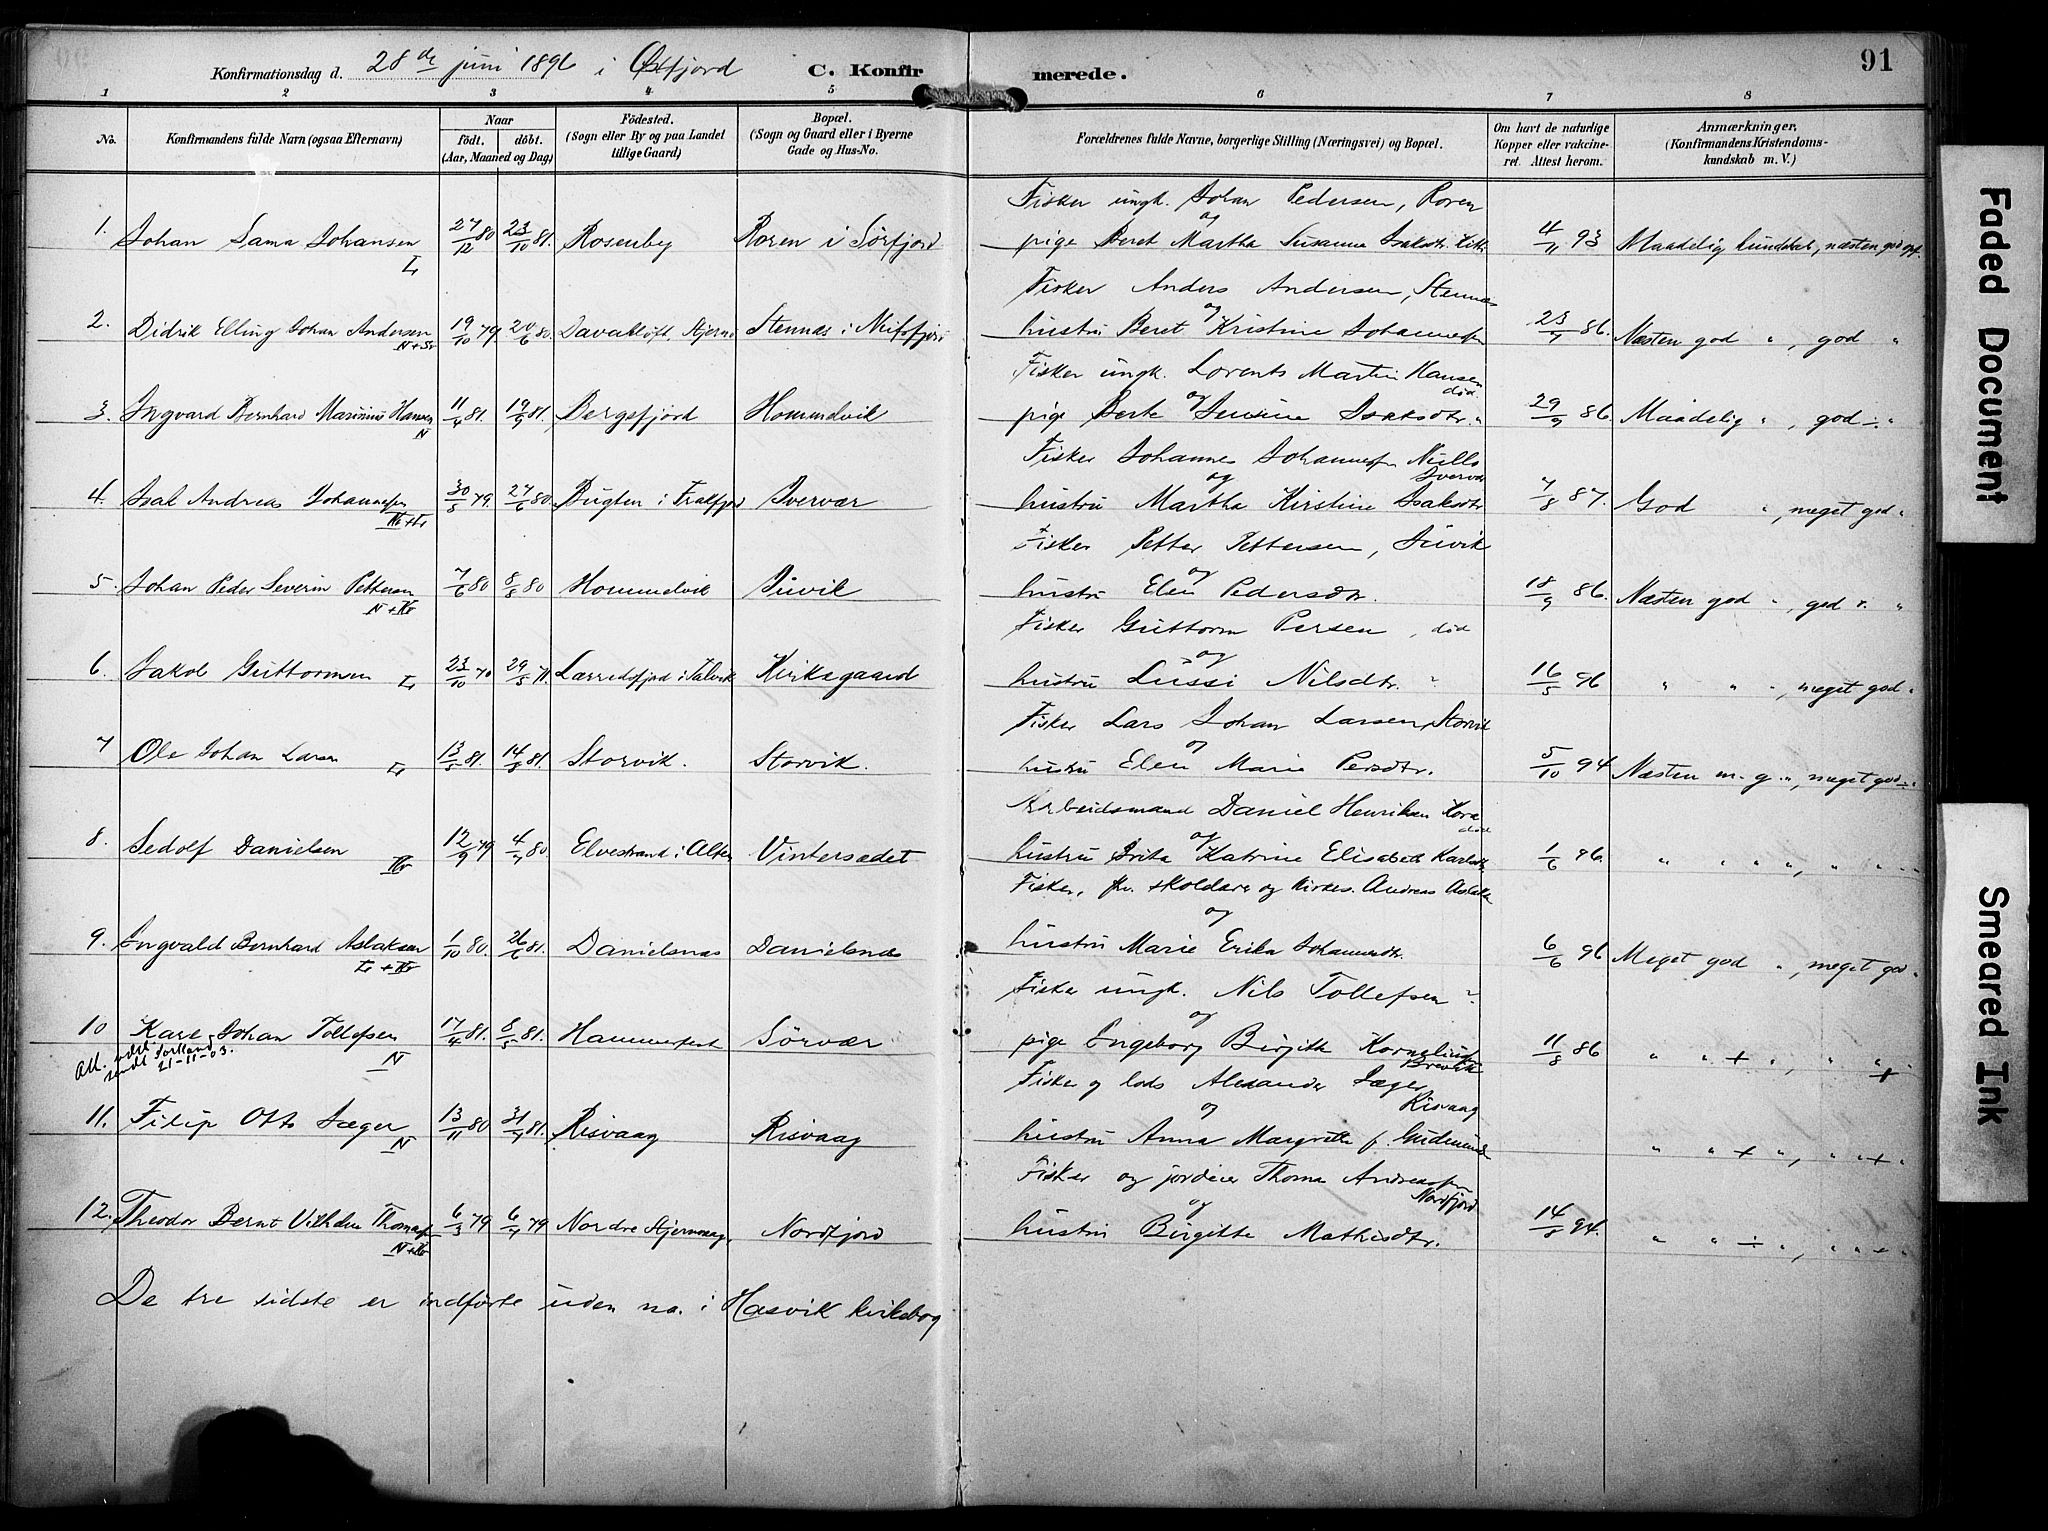 Konfirmationsdag d. 28de juni 1896 i Øxfjord
C. Konfirmerede.
91
1 2 3 4 5 6 7 8
No.
Konfirmandens fulde Navn (ogsaa Efternavn)
Naar
födt. döbt.
(Aar, Maaned og Dag)
Födested.
(Sogn eller By og paa Landet
tillige Gaard)
Bopæl.
(Sogn og Gaard eller i Byerne
Gade og Hus-No.
Forældrenes fulde Navne, borgerlige Stilling (Næringsvei) og Bopæl.
Om havt de naturlige
Kopper eller vakcine-
ret. Attest herom.
Anmærkninger.
(Konfirmandens Kristendoms-
kundskab m. V.)
Fisker ungk. Johan Pedersen, Roren
og
1. Johan Sama Johansen 27/12 80 23/10 81. Rosenby Roren i Sörfjord pige Beret Martha Susanne Isaksdtr. 4/7 93 Maadelig kundskab, næsten god opf.
Fisker Anders Andersen, Stennæs
og
2. Didrik Elling Johan Andersen 19/10 79 20/6 80. Stjernö Stennæs i hustru Beret Kristine Johannesen 23/7 86. Næsten god ", god "
N+
Fisker ungk. Lorents Martin Hansen
død
og
3. Ingvard Bernhard Marinius Hansen 11/4 81. 19/9 81. Bergsfjord Hommelvik pige Berte Jensine Isaksdtr. " 29/9 86. Maadelig ", god "
N
Fisker Johannes Johannesen
Ivervær
og
4. Isak Andreas Johannesen 30/8 79. 27/6 80. Bugten i Frakfjord Ivervær hustru Martha Kirstine Isaksdtr 7/8 87. God ", meget god "
Fisker Petter Pettersen,
og
5. Johan Peder Severin Pettersen 7/6 80 8/8 80 Hommelvik hustru Elen Pedersdtr. 18/9 86. Næsten god ", god "
Fisker Guttorm Persen, død
og
6. Jakob Guttormsen 23/10 70 29/5 71. i Talvik Kirkegaard hustru Lussi Nilsdtr. " 16/5 96 " " ", meget god "
Fisker Lars Johan Larsen, Storvik
og
7 Ole Johan Larsen 13/5 81. 14/8 81. Storvik. Storvik. hustru Elen Marie Persdtr. 5/10 94 Næsten m. g. ", meget god "
Arbeidsmand Daniel Henriksen
død
og
8. Sedolf Danielsen 12/9 79 4/7 80. Elvestrand i Alten Vintersædet hustru Brita Katrine Elisabeth Karlsdtr 1/6 96. " " " ", " "
Fisker, og Kirkes. Andreas Aslaksen
og
9. Ingvald Bernhard Aslaksen 1/10 80. 26/6 81. Danielsnæs Danielsnæs hustru Marie Erika Johannesdtr. 6/6 96 Meget god ", meget god "
Fisker ungk. Nils Tollefsen ?
og
10 Karl Johan Tollefsen 17/4 81. 8/5 81. Hammerfest Sörvær pige Ingeborg Birgitte Kornelius 11/8 86 " " + ", " "
N
Att. udst.
sendt Sortland
21-11-03.
Brevik
Fisker og lods Alexander Jæger
Risvaag
og
11. Filip Otto Jæger 13/11 80 31/7 81. Risvaag Risvaag hustru Anna Margrethe f. Gudmund " " + ", " + "
N
Fisker og jordeier Thomas Andreasen
Nordfjord
og
12. Theodor Bernt Vilhelm Thomasen 6/3 79 6/7 79 Nordre Stjernvaag. Nordfjord hustru Birgitte Mathisdtr. 14/8 94. " " + ", " + "
De tre sidste er indförte uden no. i Hasvik kirkebog
Faded Document
Smeared Ink